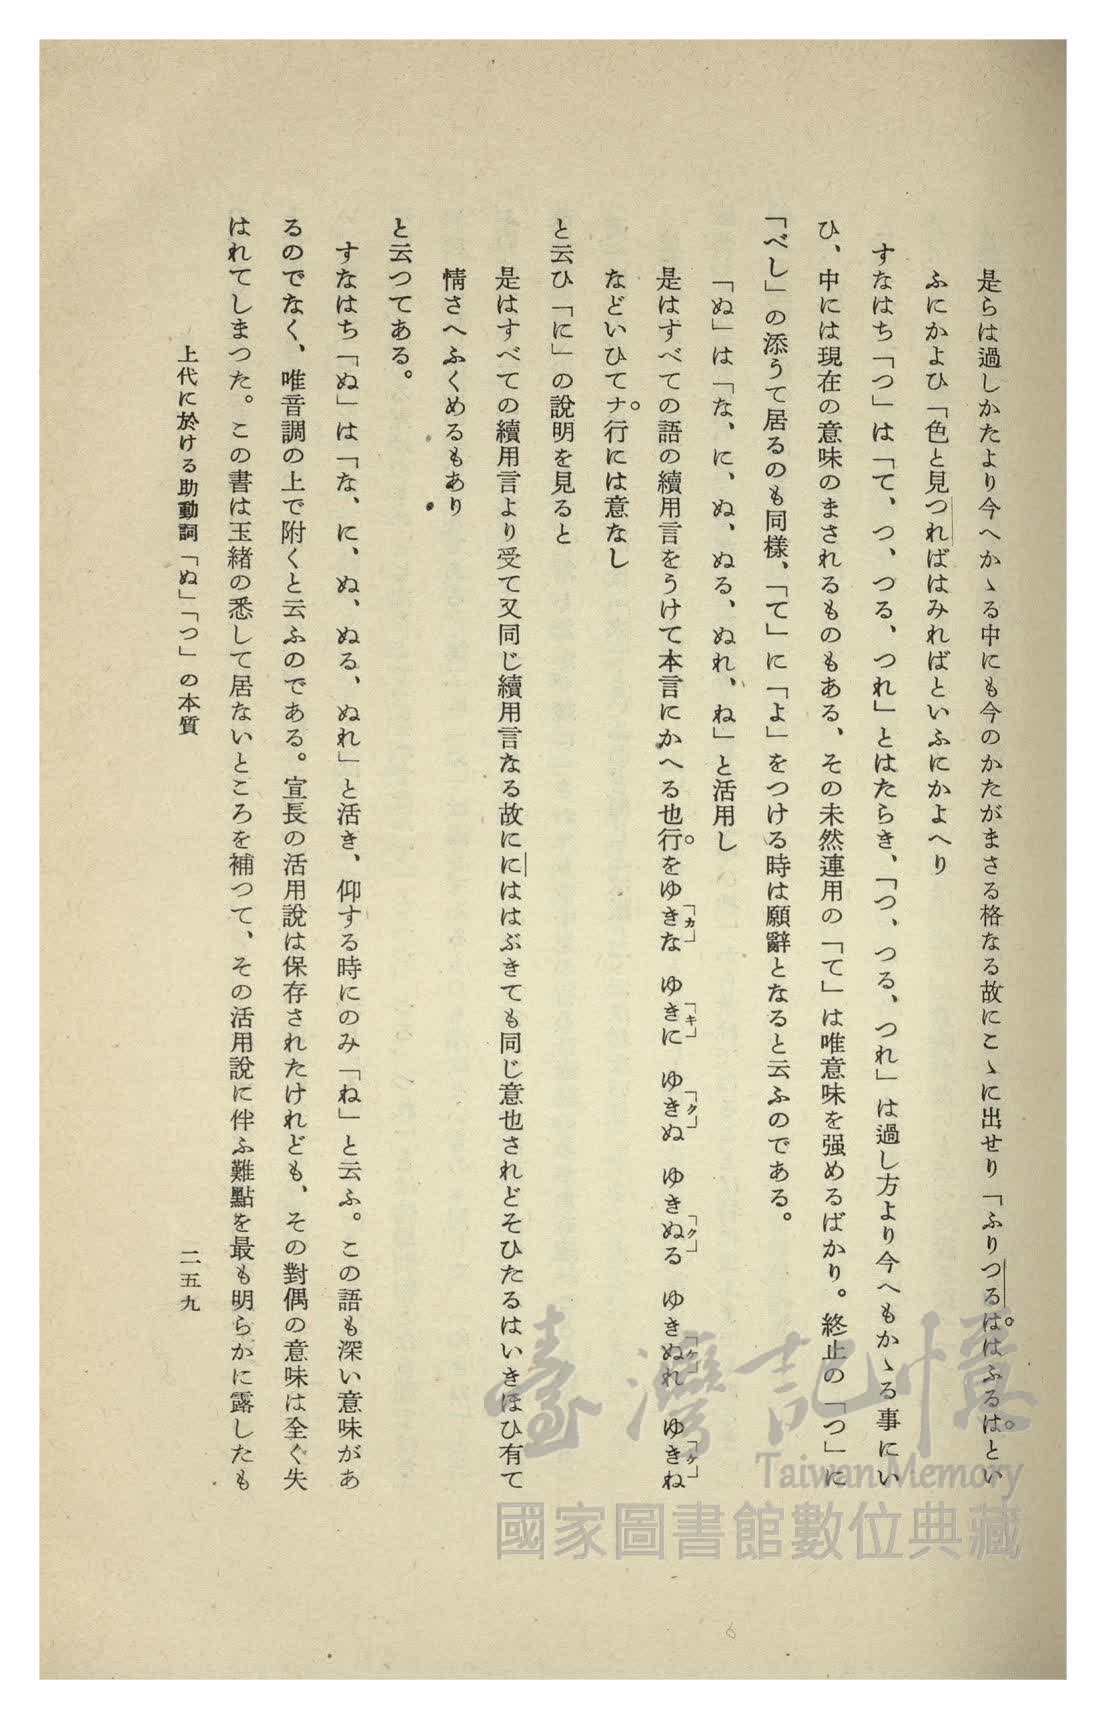 是らは過しかたより今へかゝる中にも今のかたがまさる格なる故にこゝに出せり「ふりつるは。はふるは。とい
ふにかよひ「色と見つればはみればといふにかよへり
すなはち「つ」は「て、つ、つる、つれ」とはたらき、「つ、つる、つれ」は過し方より今へもかゝる事にい
ひ、中には現在の意味のまされるものもある、その未然連用の「て」は唯意味を强めるばかり。終止の「つ」に
「べし」の添うて居るのも同樣、「て」に「よ」をつける時は願辭となると云ふのである。
「ぬ」は「な、に、ぬ、ぬる、ぬれ、ね」と活用し
是はすべての語の續用言をうけて本言にかへる也行。をゆきな「カ」 ゆきに「キ」 ゆきぬ「ク」 ゆきぬる「ク」 ゆきぬれ「ケ」 ゆきね「ケ」
などいひてナ。行には意なし
と云ひ「に」の說明を見ると
是はすべての續用言より受て又同じ續用言なる故ににははぶきても同じ意也されどそひたるはいきほひ有て
情さへふくめるもあり
と云つてある。
すなはち「ぬ」は「な、に、ぬ、ぬる、ぬれ」と活き、仰する時にのみ「ね」と云ふ。この語も深い意味があ
るのでなく、唯音調の上で附くと云ふのである。宣長の活用說は保存されたけれども、その對偶の意味は全ぐ失
はれてしまつた。この書は玉緒の悉して居ないところを補つて、その活用說に伴ふ難點を最も明らかに露したも
上代に於ける助動詞「ぬ」「つ」の本質
二五九
臺灣記憶
Taiwan Memory
國家圖書館數位典藏
6